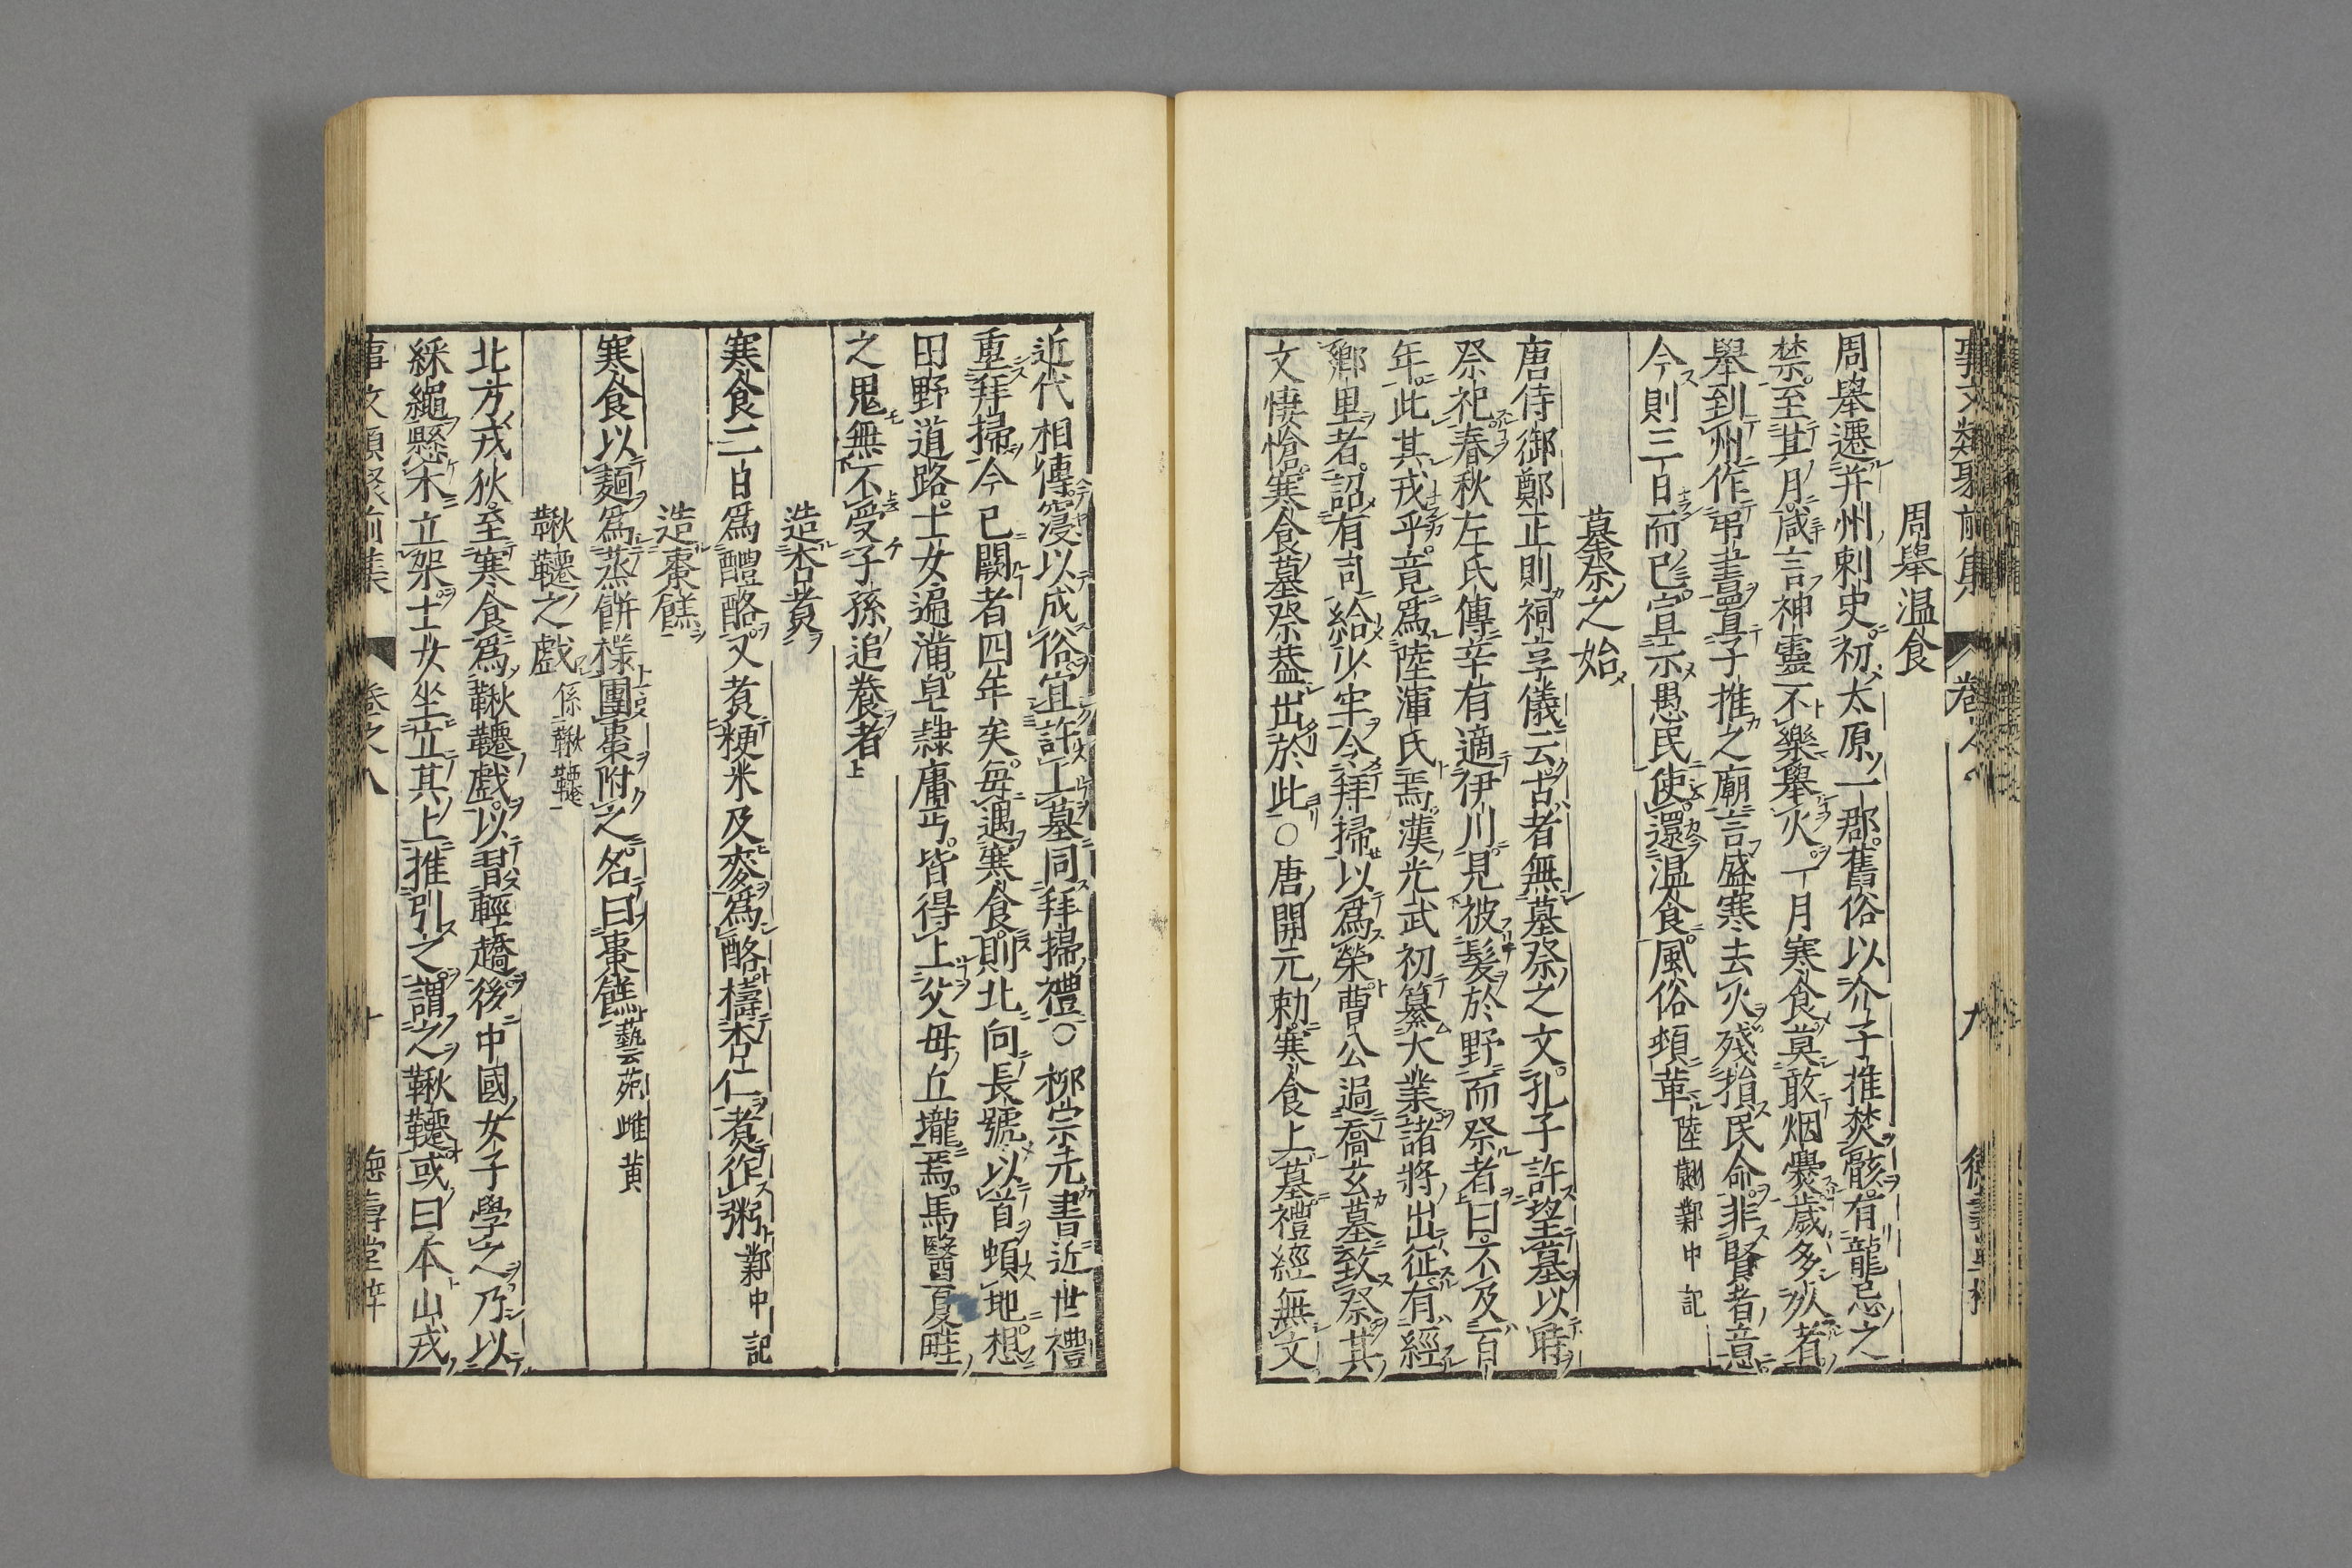 周舉温食
周舉遷并州刺史初太原一郡舊俗以介子推焚骸有龍忌之
禁至其月咸言神靈不樂舉火一月寒食莫敢烟爨歲多死者
舉到州作弔書置子推之廟言盛寒去火殘損民命非賢者意
今則三日而已宣示愚民使還温食風俗頓革陸翽鄴中記
墓祭之始
唐侍御鄭正則祠享儀云古者無墓祭之文孔子許望墓以時
祭祀春秋左氏傳辛有適伊川見被髮於野而祭者曰不及百
年此其戎乎竟爲陸渾氏焉漢光武初纂大業諸將出征有經
鄉里者詔有司給少牢令拜掃以爲榮曹公過喬玄墓致祭其
文悽愴寒食墓祭葢出於此○唐開元勅寒食上墓禮經無文
近代相傳寖以成俗宜許上墓同拜掃禮○柳宗元書近世禮
重拜掃今已闕者四年矣每遇寒食則北向長號以首頓地想
田野道路士女遍滿皁隷庸丐皆得上父母丘壠焉馬醫夏畦
之鬼無不受子孫追養者上
造杏煑
寒食二日爲醴酪又煑粳米及麥爲酪擣杏仁煑作粥鄴中記
造棗餻
寒食以麺爲蒸餅樣團棗附之名曰棗餻藝苑雌黄
鞦韆之戲係鞦韆
北方戎狄至寒食爲鞦韆戲以習輕趫後中國女子學之乃以
綵繩懸木立架士女坐立其上推引之謂之鞦韆或曰本山戎
事文類聚前集 卷之八 十 德壽堂梓